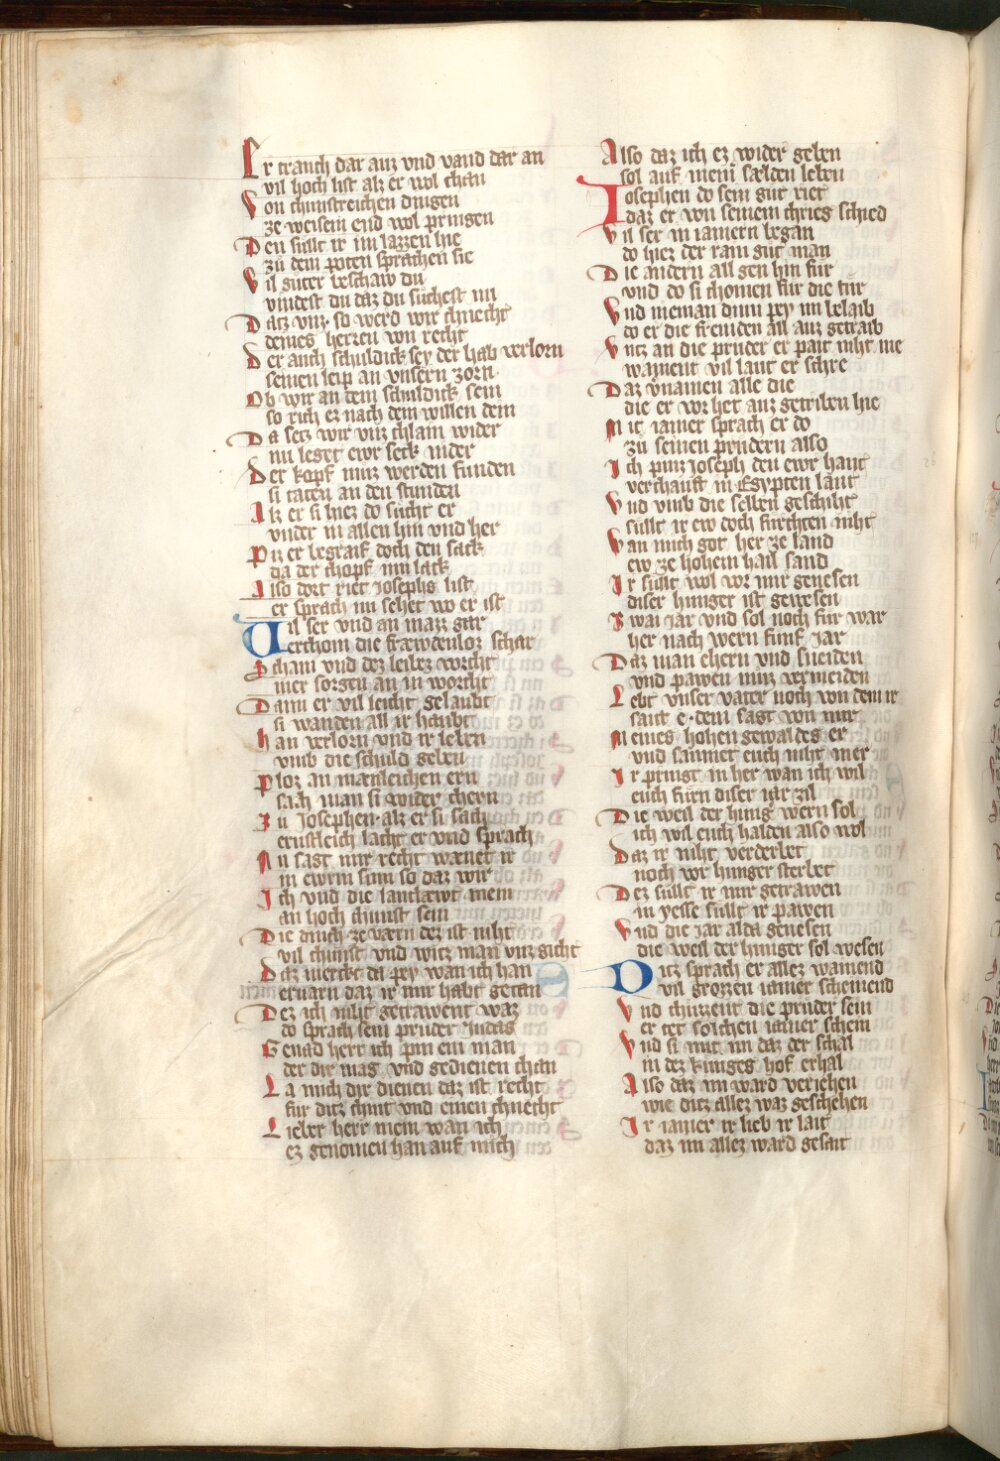 Er tranch dar auz vnd vand dar an
vil hoch list alz er wol chan
Von chunstreichen dingen
ze weisem end wol pringen
Den sullt ir im lazzen hie
zu dem poten sprachen sie
Vil guter beschaw du
vindest du daz du suchest nu
Datz vnz · so werd wir chnecht
deines herren von recht
Der auch schuldick sey der hab verlorn
seinen leip an vnsern zorn
Ob wir an dem schuldick sein
so rich ez nach dem willen dein
Da setz wir vnz chlain wider
nu leget ewr seck nider
Der kopf muz werden funden
si taten an den stunden
Alz er si hiez do sucht er
vnder in allen hin vnd her
Piz er begraif doch den sack
da der chopf inn lack
Also dort riet Josephs list
er sprach nu sehet wo er ist
Vil ser vnd an mazz gar
erchom die fræwdenloz schar
Scham vnd dez leibez vorcht
mer sorgen an in worcht
Dann er vil leicht gelaubt
si wanden all ir haubt
han verlorn vnd ir leben
vmb die schuld geben
Ploz an mænsleichen ern
sach man si wider chern
Zu Josephen · alz er si sach
ernstleich lacht er vnd sprach
Nu sagt mir recht wænet ir
in ewrm sinn so daz wir
Ich vnd die lantlæwt mein
an hoch chunst sein
Die dinch ze værn dez ist niht
vil chunst vnd witz man vnz gicht
Daz merckt da pey wan ich han
ervarn daz ir mir habt getan
Dez ich niht getrawent waz
do sprach sein pruder Judas
Genad herr ich pin ein man
der dir mag vnd gedienen chan
La mich dir dienen daz ist recht
für ditz chint vnd einen chnecht
Lieber herr mein wan ich
ez genomen han auf mich
Also daz ich ez wider geben
sol auf mein sælden leben
Josephen do sein gut riet
daz er von seinem chrieg schied
Vil ser in iamern began
do hiez der rain gut man
Die andern all gen hin für
vnd do si chomen für die tür
Vnd nieman dinn pey im belaib
do er die fremden all auz getraib
Vntz an die pruder er pait niht me
wainent vil laut er schre
Daz vernamen alle die
die er vor het auz getriben hie
Mit iamer sprach er do
zu seinen prudern also
Ich pinz Joseph den ewr hant
verchauft in Egypten lant
Vnd vmb die selben geschiht
sullt ir ew doch furchten niht
Wan mich got her ze land
ew ze hohem hail sand
Ir sullt wol vor mir genesen
diser hunger ist gewesen
Zwai iar vnd sol noch für war
her nach wern funf Jar
Daz man ehern vnd sneiden
vnd pawen muz vermeiden
Lebt vnser vater noch von dem ir
sait e · dem sagt von mir
Meines hohen gewaldes er
vnd saumet euch niht mer
Ir pringt in her wan ich wil
euch fürn diser iar zil
Die weil der hung wern sol
ich wil euch halden also wol
Daz ir niht verderbet
noch vor hunger sterbet
Dez sullt ir mir getrawen
in yesse sullt ir pawen
Vnd die iar alda genesen
die weil der hunger sol wesen
Ditz sprach er allez wainend
vil grozzen iamer scheinend
Vnd chuzzent die pruder sein
er tet solchen iamer schein
Vnd si mit im daz der schal
in dez kuniges hof erhal
Also daz im ward veriehen
wie ditz allez waz geschehen
Ir iamer ir lieb ir lait
daz im allez ward gesait